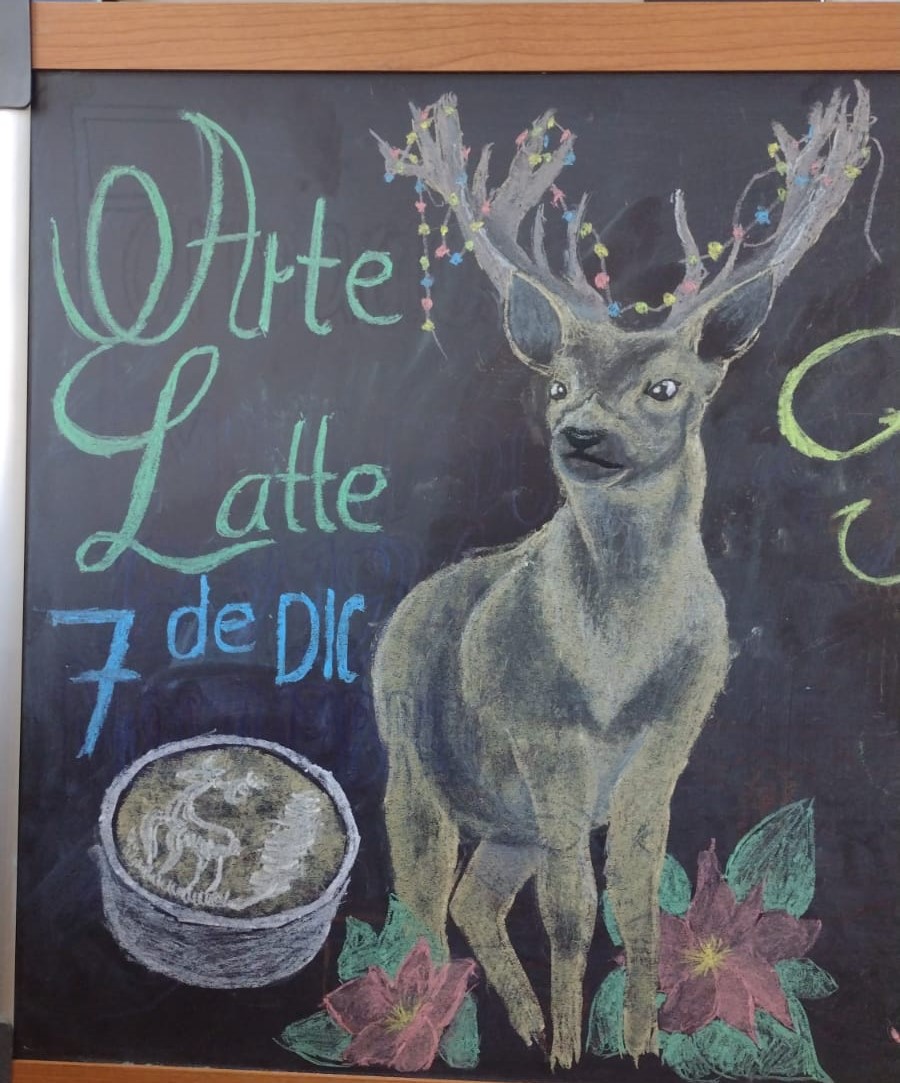 Arte
Latte
7 de DIC